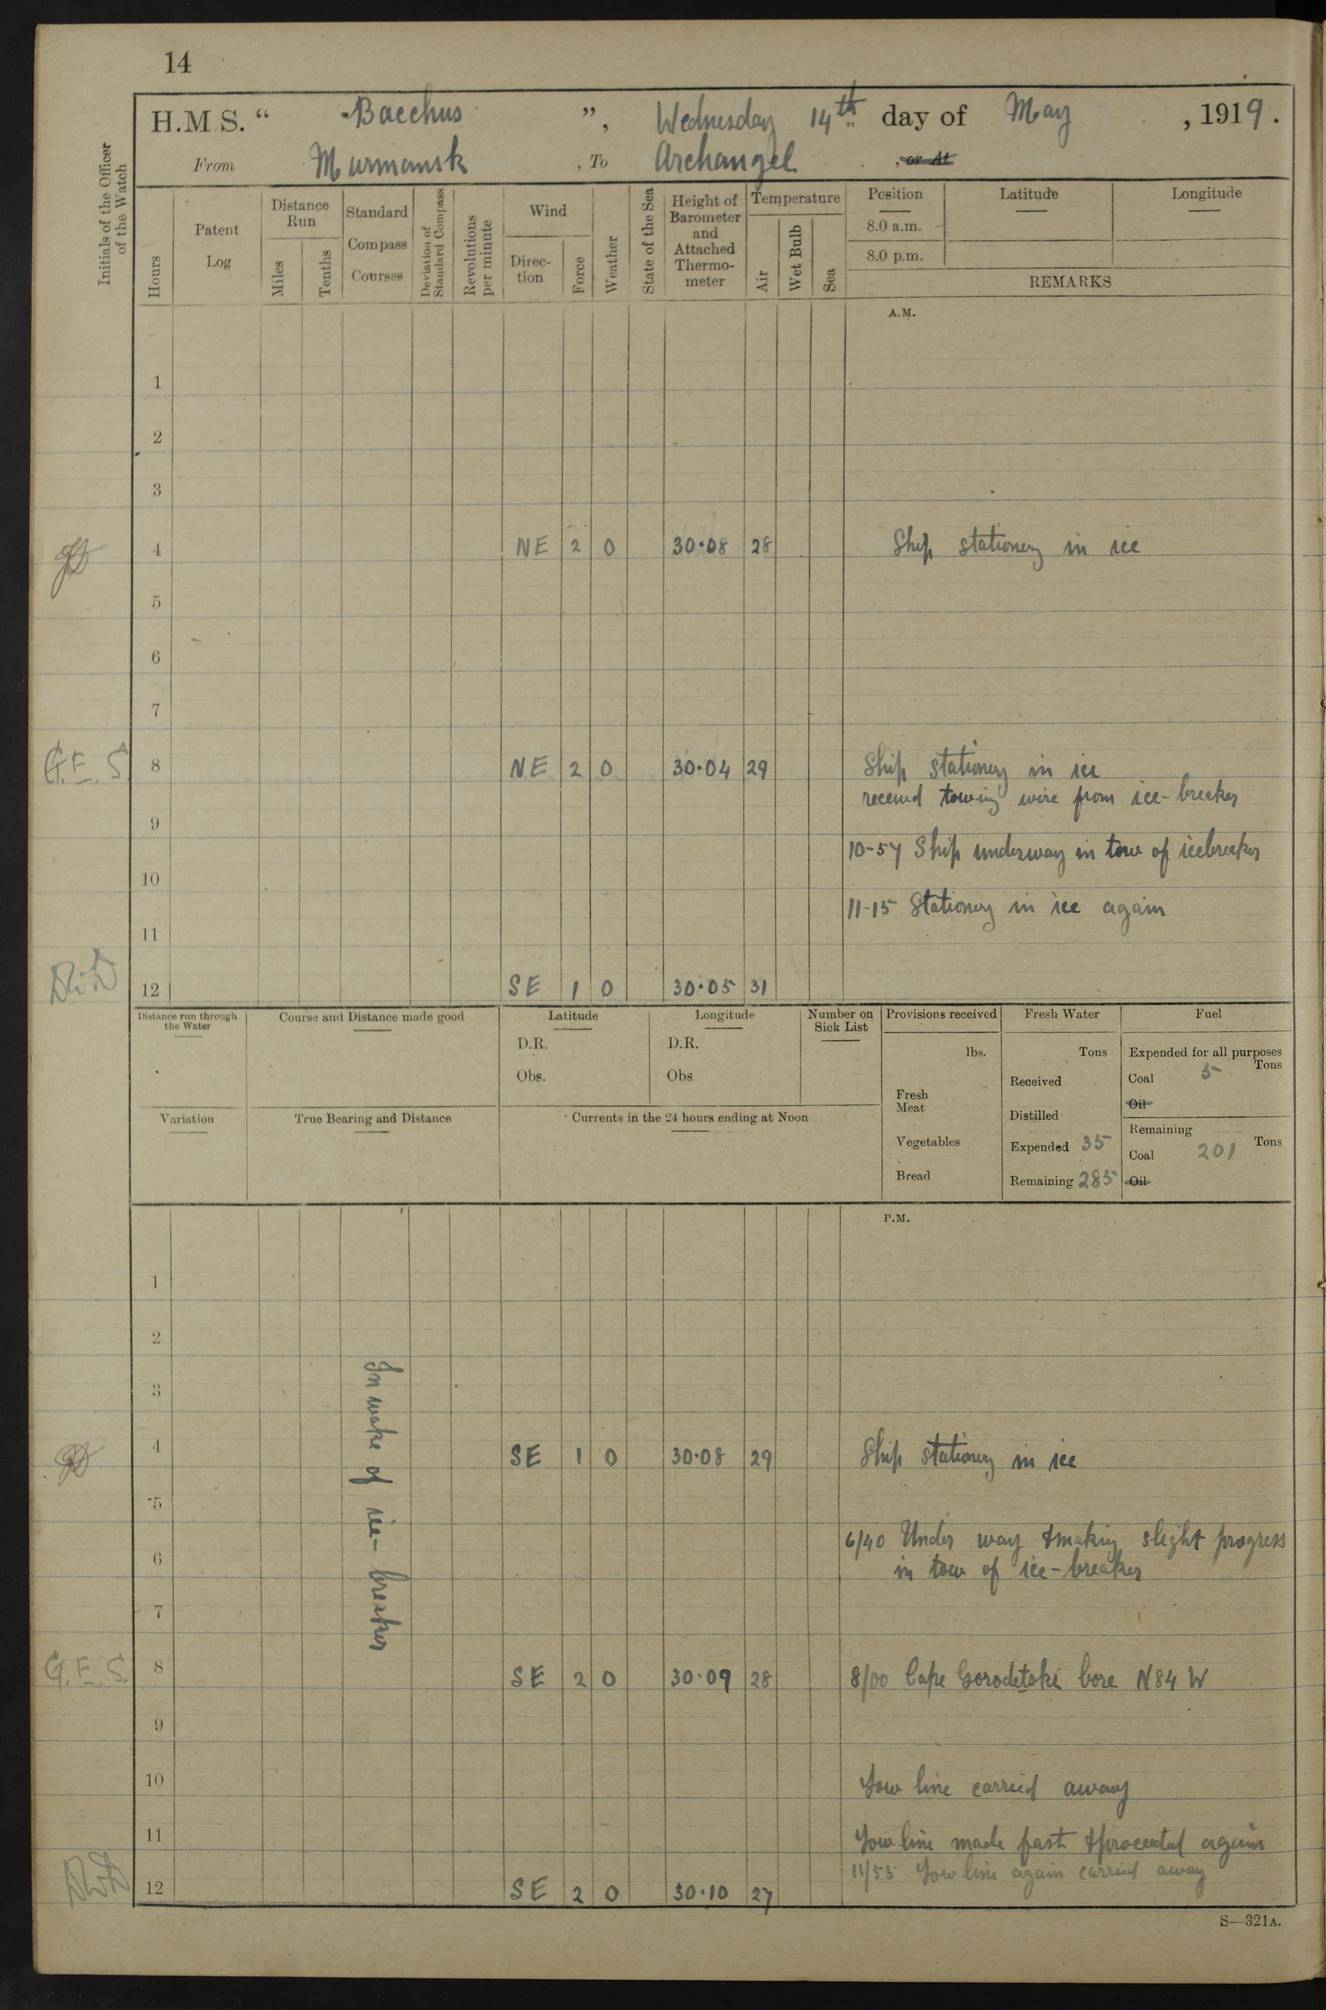 14
H.M.S. “ Bacchus ”, Wednesday 14th day of May, 1919.
From Murmansk, To Archangel, or At
Initials of the Officer of the Watch
Hours
Patent Log
Distance Run
Miles
Tenths
Standard Compass Courses
Deviation of Standard Compass
Revolutions per minute
Wind
Direction
Force
Weather
State of the Sea
Height of Barometer and Attached Thermometer
Temperature
Air
Wet Bulb
Sea
Position
Latitude
Longitude
8.0 a.m.
8.0 p.m.
REMARKS
A.M.
1
2
3
4 NE 2 0 30·08 28 Ship stationery in ice
5
6
7
G.E.S. 8 NE 2 0 30·04 29 Ship stationery in ice
received towing wire from ice-breaker
9
10-57 Ship underway in tow of icebreaker
10
11-15 Stationery in ice again
11
12 SE 1 0 30·05 31
Distance run through the Water
Course and Distance made good
Latitude
D.R.
Obs.
Longitude
D.R.
Obs
Number on Sick List
Provisions received
lbs.
Fresh Meat
Vegetables
Bread
Fresh Water
Tons
Received
Distilled
Expended 35
Remaining 285
Fuel
Expended for all purposes
Tons
Coal 5
Oil
Remaining
Tons
Coal 201
Oil
Variation
True Bearing and Distance
Currents in the 24 hours ending at Noon
P.M.
1
2
3
In wake of ice-breaker
4 SE 1 0 30·08 29 Ship stationery in ice
5
6/40 Under way & making slight progress
6
in tow of ice-breaker
7
G.E.S. 8 SE 2 0 30·09 28 8/00 Cape Gorodetski bore N84W
9
10 Tow line carried away
11 Tow line made fast & proceeded again
11/55 Tow line again carried away
12 SE 2 0 30·10 27
S—321A.